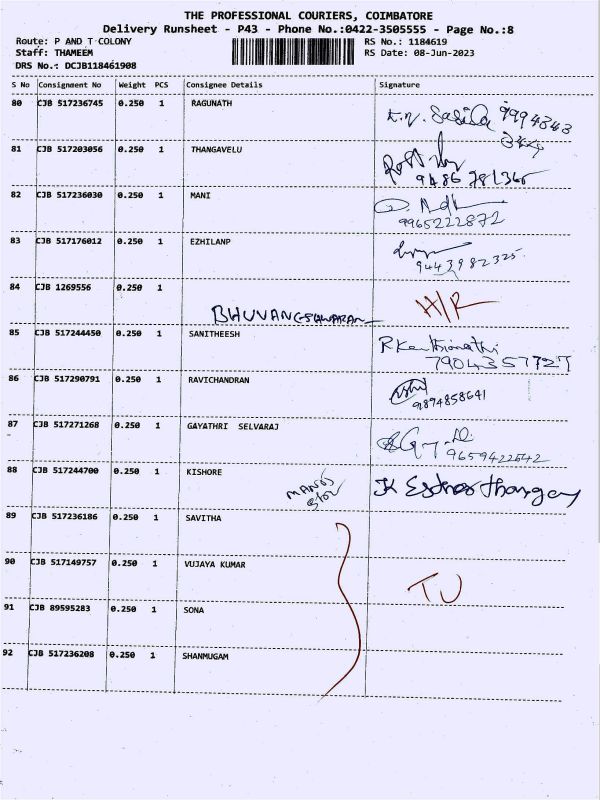 THE PROFESSIONAL COURIERS, COIMBATORE
Delivery Runsheet - P43 - Phone No.:0422-3505555 - Page No.:8
Route: P AND T COLONY RS No.: 1184619
Staff: THAMEEM RS Date: 08-Jun-2023
DRS No.: DCJB118461908
S No Consignment No Weight PCS Consignee Details Signature
80 CJB 517236745 0.250 1 RAGUNATH
81 CJB 517203056 0.250 1 THANGAVELU
9486781365
82 CJB 517236030 0.250 1 MANI
9965222872
83 CJB 517176012 0.250 1 EZHILANP
9443982325
84 CJB 1269556 0.250 1 H/R
BHUVANESHWARAN
85 CJB 517244450 0.250 1 SANITHEESH
7904357727
86 CJB 517290791 0.250 1 RAVICHANDRAN
9894858641
87 CJB 517271268 0.250 1 GAYATHRI SELVARAJ
9659422542
88 CJB 517244700 0.250 1 KISHORE
89 CJB 517236186 0.250 1 SAVITHA
90 CJB 517149757 0.250 1 VIJAYA KUMAR
TU
91 CJB 89595283 0.250 1 SONA
92 CJB 517236208 0.250 1 SHANMUGAM